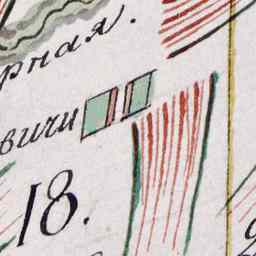 рная.
вичи
18.